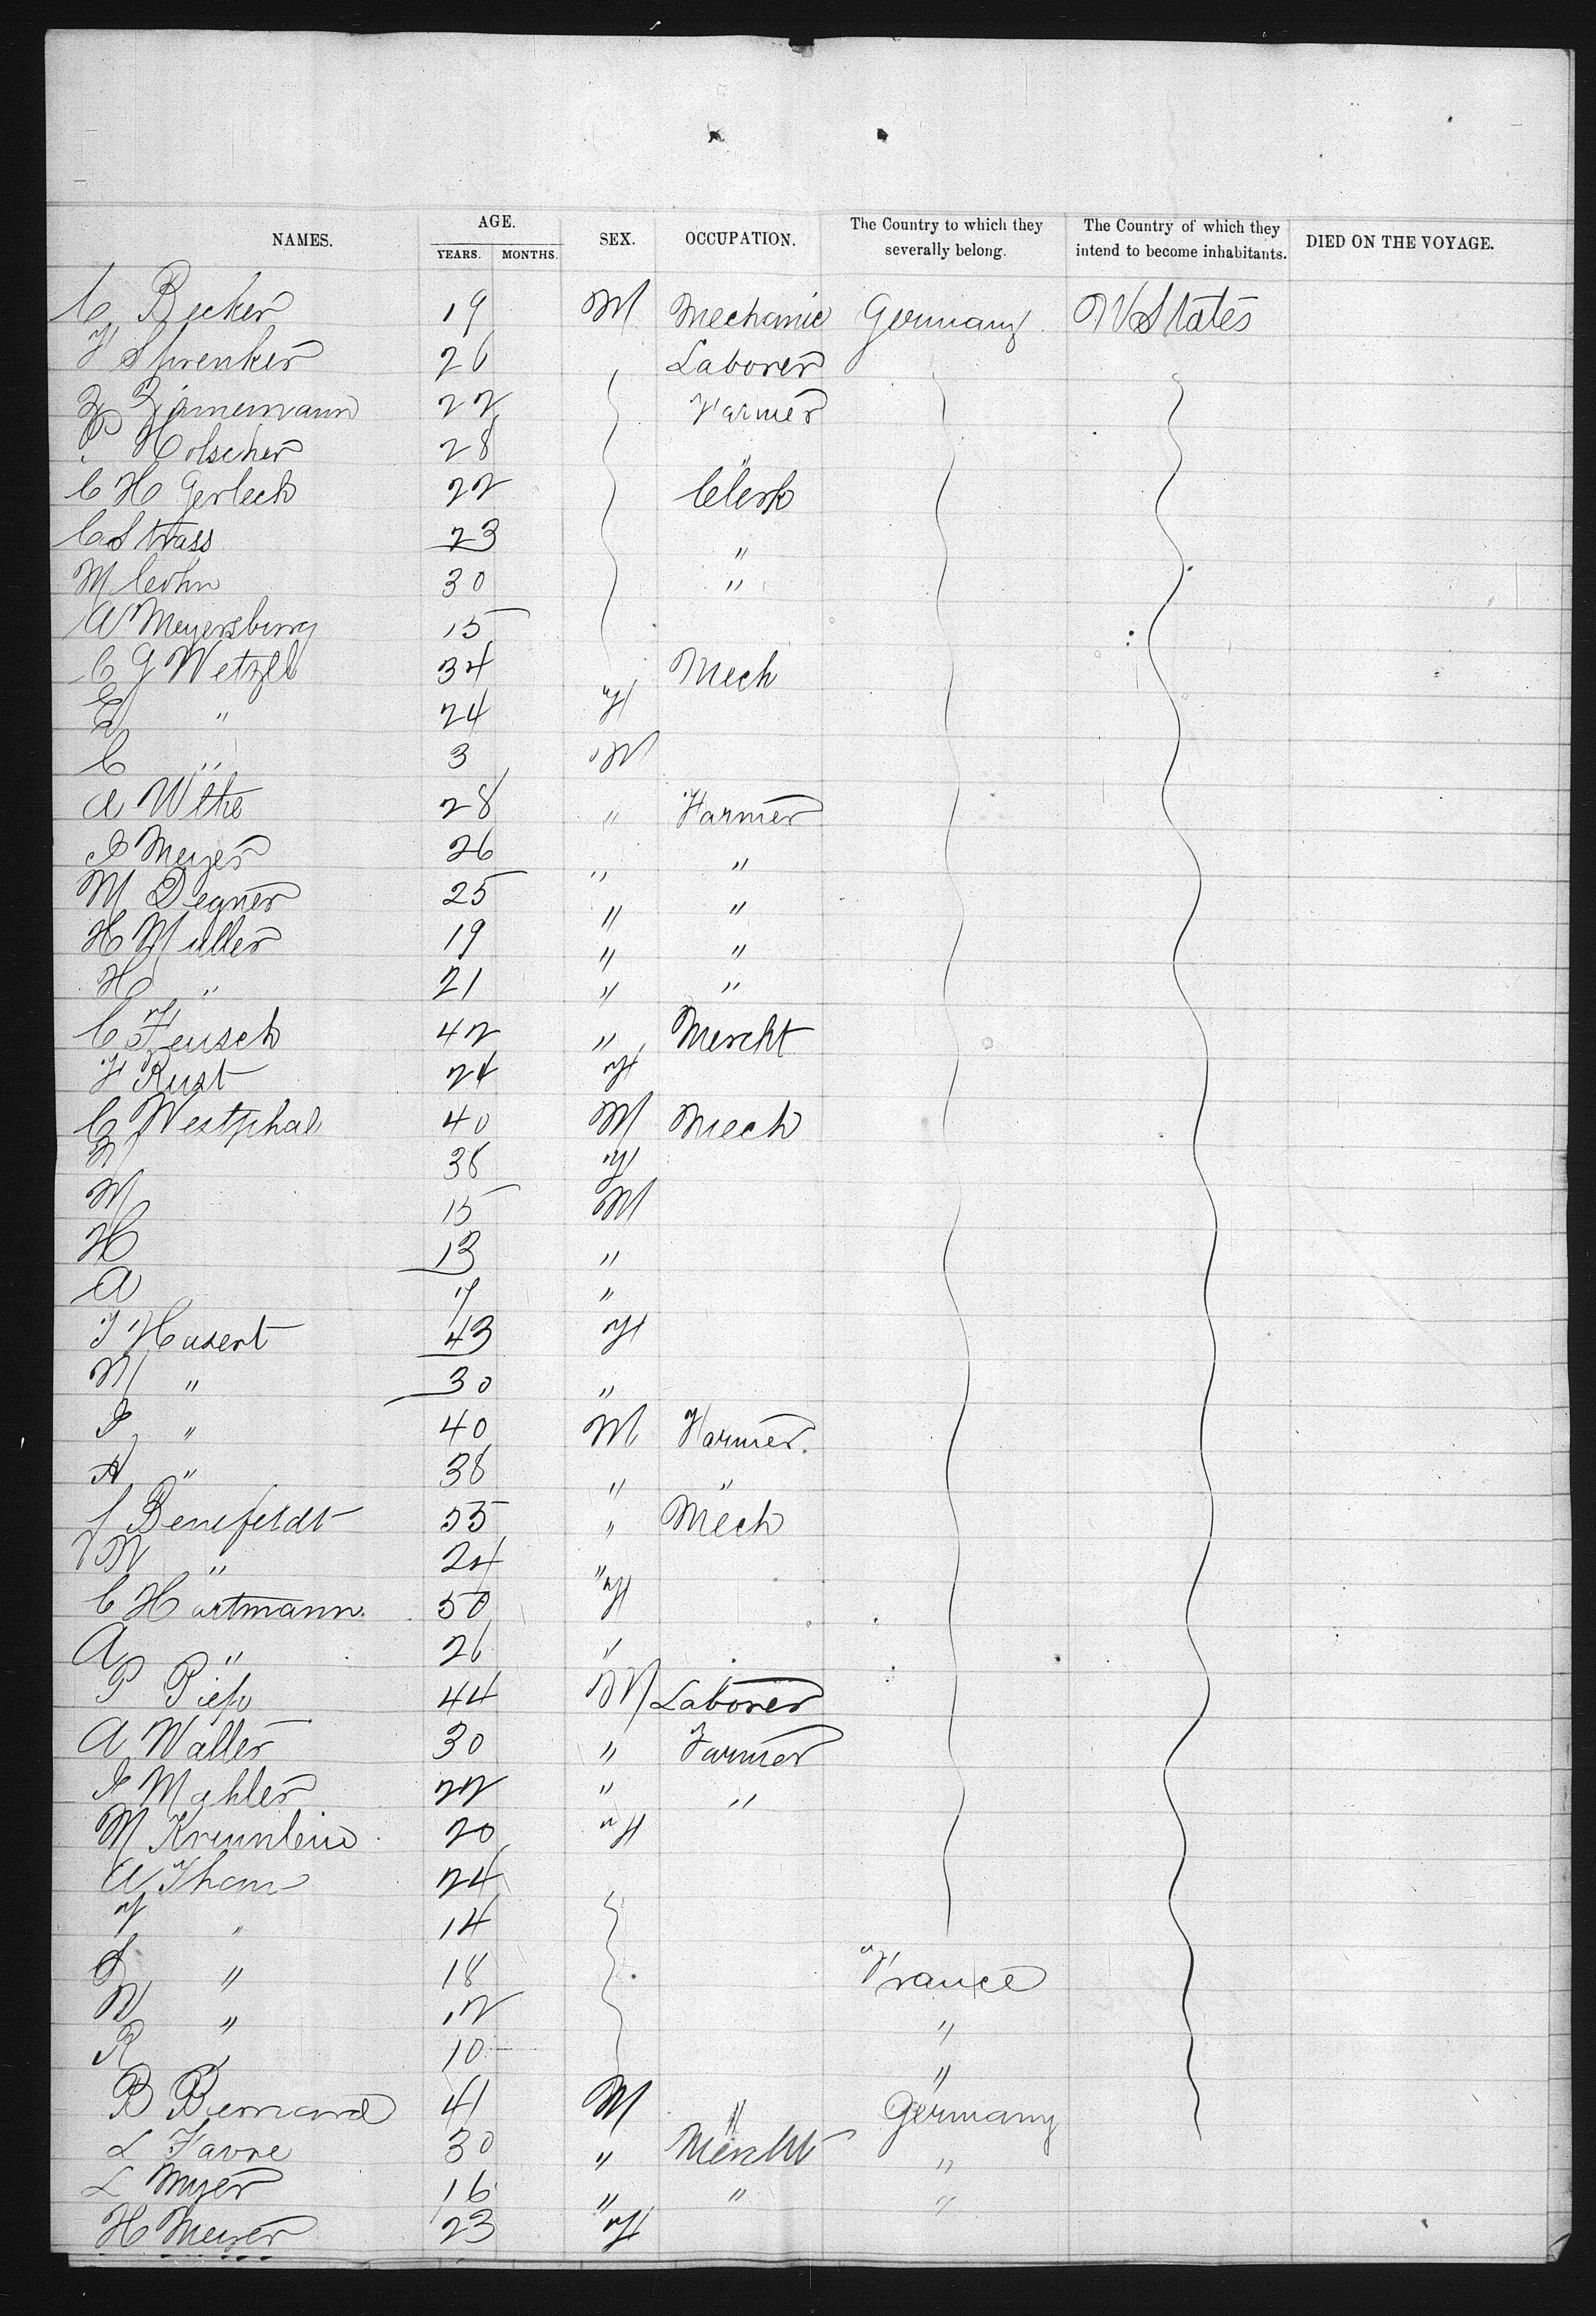 NAMES. AGE. YEARS. MONTHS. SEX. OCCUPATION. The Country to which they severally belong. The Country of which they intend to become inhabitants. DIED ON THE VOYAGE.
C Becker 19 M Mechanic Germany U States
F Shrenker 26 Laborer
Z Zinnemann 22 Farmer
P Holscher 28 "
C H Gerlech 22 Clerk
C Strass 23 "
M Cohn 30 "
A Meyersburg 15
C G Wetzel 34 Mech
E " 24 F
C " 3 M
A Witte 28 " Farmer
I Meyer 26 " "
M Degner 25 " "
H Muller 19 " "
H " 21 " "
C Feusch 42 " Mercht
F Rust 24 F
C Westphal 40 M Mech
38 F
M 15 M
H 13 "
A 7 "
T Husert 43 F
M " 30 "
I " 40 M Farmer.
A " 38 " "
Benefeldt 55 " Mech
" 24 "
C Hartmann. 50 F
A " 26 "
P Piefo 44 M Laborer
A Waller 30 " Farmer
I Mahler 22 " "
M Kreunlein 20 F
A Thom 24
F " 14
S " 18 France
N " 12 "
R " 10 "
B Bernard 41 M " Germany
L Favre 30 " Mercht "
L Myer 16 " " "
H Meyer 23 F